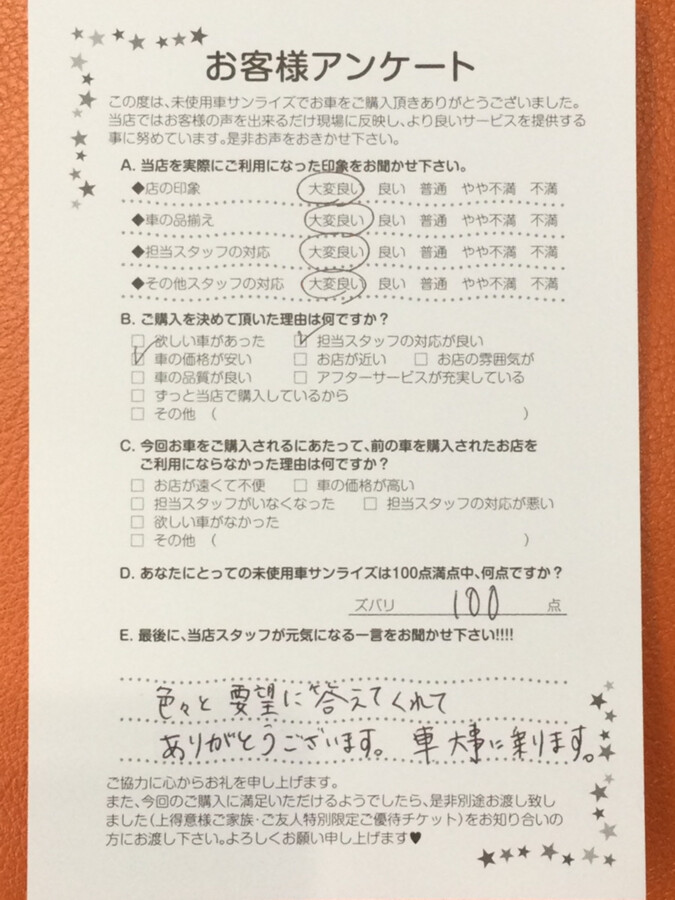 お客様アンケート
この度は、未使用車サンライズでお車をご購入頂きありがとうございました。
当店ではお客様の声を出来るだけ現場に反映し、より良いサービスを提供する
事に努めています。是非お声をおきかせ下さい。
A. 当店を実際にご利用になった印象をお聞かせ下さい。
◆店の印象 大変良い 良い 普通 やや不満 不満
◆車の品揃え 大変良い 良い 普通 やや不満 不満
◆担当スタッフの対応 大変良い 良い 普通 やや不満 不満
◆その他スタッフの対応 大変良い 良い 普通 やや不満 不満
B. ご購入を決めて頂いた理由は何ですか？
□ 欲しい車があった ☑ 担当スタッフの対応が良い
☑ 車の価格が安い □ お店が近い □ お店の雰囲気が
□ 車の品質が良い □ アフターサービスが充実している
□ ずっと当店で購入しているから
□ その他（ ）
C. 今回お車をご購入されるにあたって、前の車を購入されたお店を
ご利用にならなかった理由は何ですか？
□ お店が遠くて不便 □ 車の価格が高い
□ 担当スタッフがいなくなった □ 担当スタッフの対応が悪い
□ 欲しい車がなかった
□ その他（ ）
D. あなたにとっての未使用車サンライズは100点満点中、何点ですか？
ズバリ 100 点
E. 最後に、当店スタッフが元気になる一言をお聞かせ下さい!!!!
色々と要望に答えてくれて
ありがとうございます。車大事に乗ります。
ご協力に心からお礼を申し上げます。
また、今回のご購入に満足いただけるようでしたら、是非別途お渡し致し
ました（上得意様ご家族・ご友人特別限定ご優待チケット）をお知り合いの
方にお渡し下さい。よろしくお願い申し上げます♥